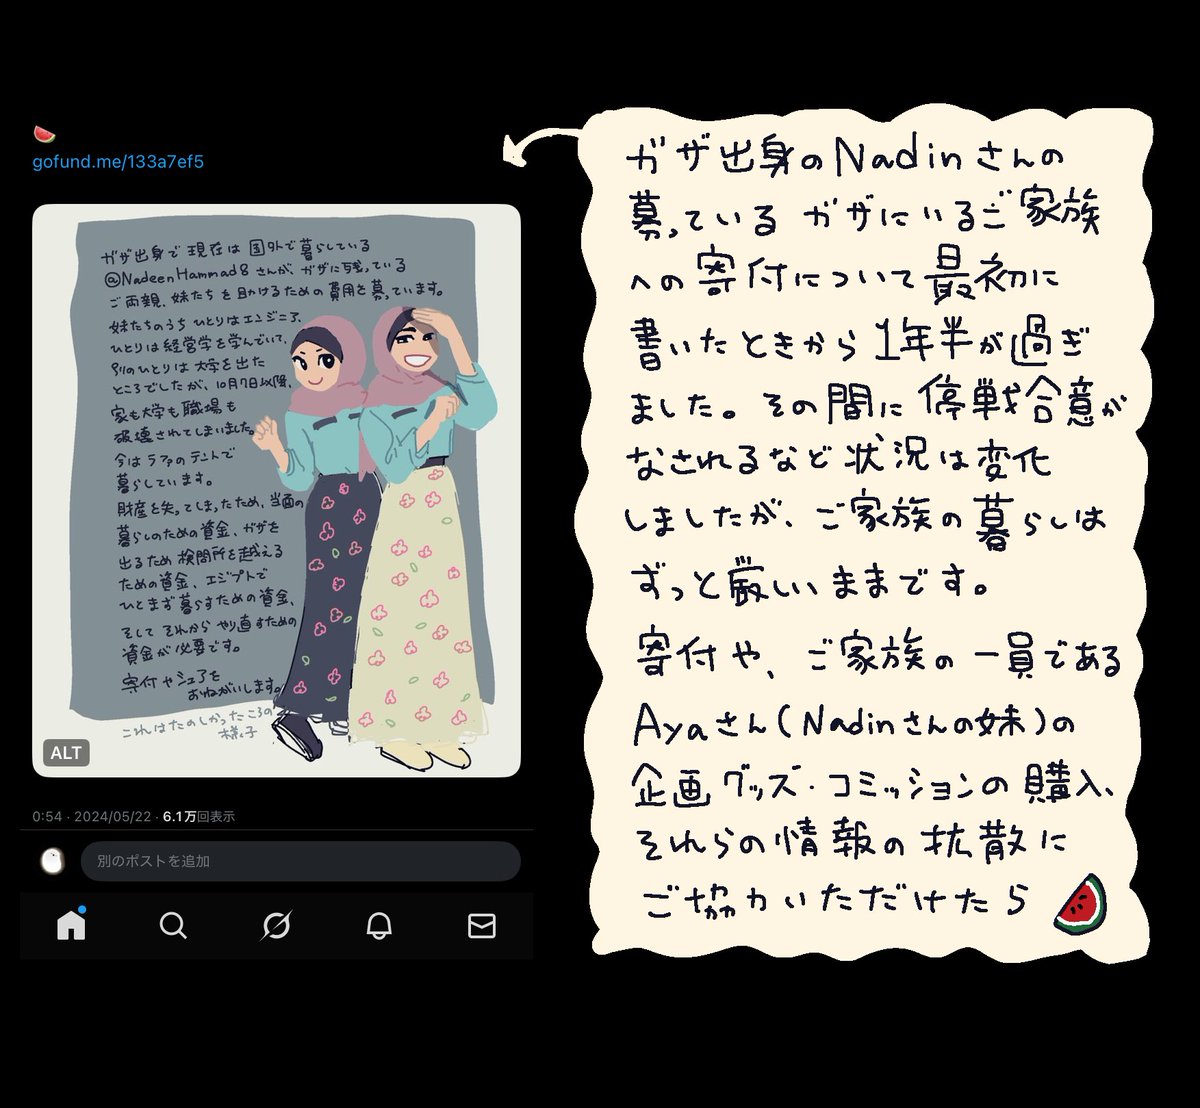 gofund.me/133a7ef5
ガザ出身で現在は国外で暮らしている
@NadeenHammad8さんが、ガザに残っている
ご両親、妹たちを助けるための費用を募っています。
妹たちのうちひとりはエンジニア、
ひとりは経営学を学んでいて、
別のひとりは大学を出た
ところでしたが、10月7日以降、
家も大学も職場も
破壊されてしまいました。
今はラファのテントで
暮らしています。
財産を失ってしまったため、当面の
暮らしのための資金、ガザを
出るため検問所を越える
ための資金、エジプトで
ひとまず暮らすための資金、
そしてそれからやり直すための
資金が必要です。
寄付やシェアを
おねがいします。
これはたのしかったころの
様子
ALT
0:54 · 2024/05/22 · 6.1万回表示
別のポストを追加
ガザ出身のNadinさんの
募っている ガザにいるご家族
への寄付について最初に
書いたときから1年半が過ぎ
ました。その間に停戦合意が
なされるなど状況は変化
しましたが、ご家族の暮らしは
ずっと厳しいままです。
寄付や、ご家族の一員である
Ayaさん(Nadinさんの妹)の
企画グッズ・コミッションの購入、
それらの情報の拡散に
ご協力いただけたら